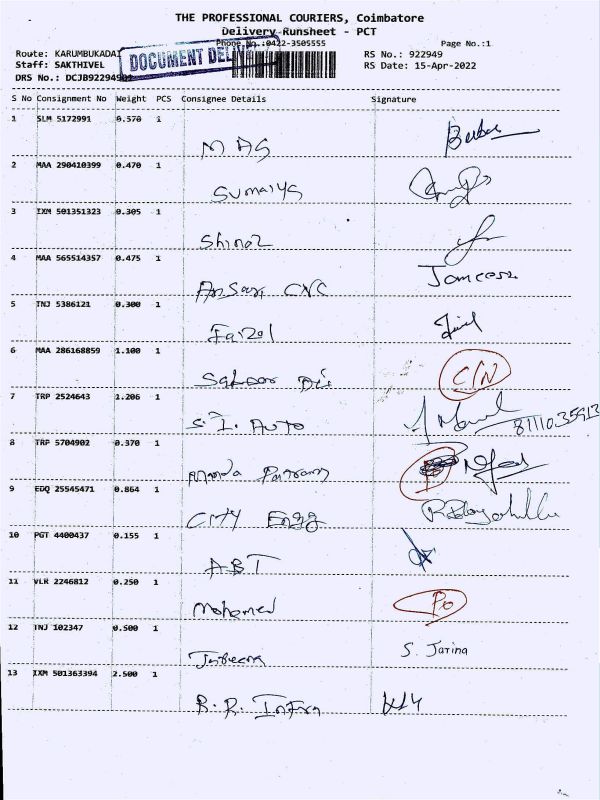 THE PROFESSIONAL COURIERS, Coimbatore
Delivery Runsheet - PCT
Phone No.:0422-3505555 Page No.:1
Route: KARUMBUKADAI RS No.: 922949
Staff: SAKTHIVEL RS Date: 15-Apr-2022
DOCUMENT
DRS No.: DCJB922949
S No Consignment No Weight PCS Consignee Details Signature
1 SLM 5172991 0.570 1
MAS
2 MAA 290410399 0.470 1
Sumaiya
3 IXM 501351323 0.305 1
4 MAA 565514357 0.475 1
Ansari CNC
5 TNJ 5386121 0.300 1
Faizal
6 MAA 286168859 1.100 1
C/N
7 TRP 2524643 1.206 1
S.I. Auto
8 TRP 5704902 0.370 1
9 EDQ 25545471 0.864 1
City Engg
10 PGT 4400437 0.155 1
ABT
11 VLR 2246812 0.250 1
Mohamed
12 TNJ 102347 0.500 1
S. Jarina
13 IXM 501363394 2.500 1
R.R. Infra